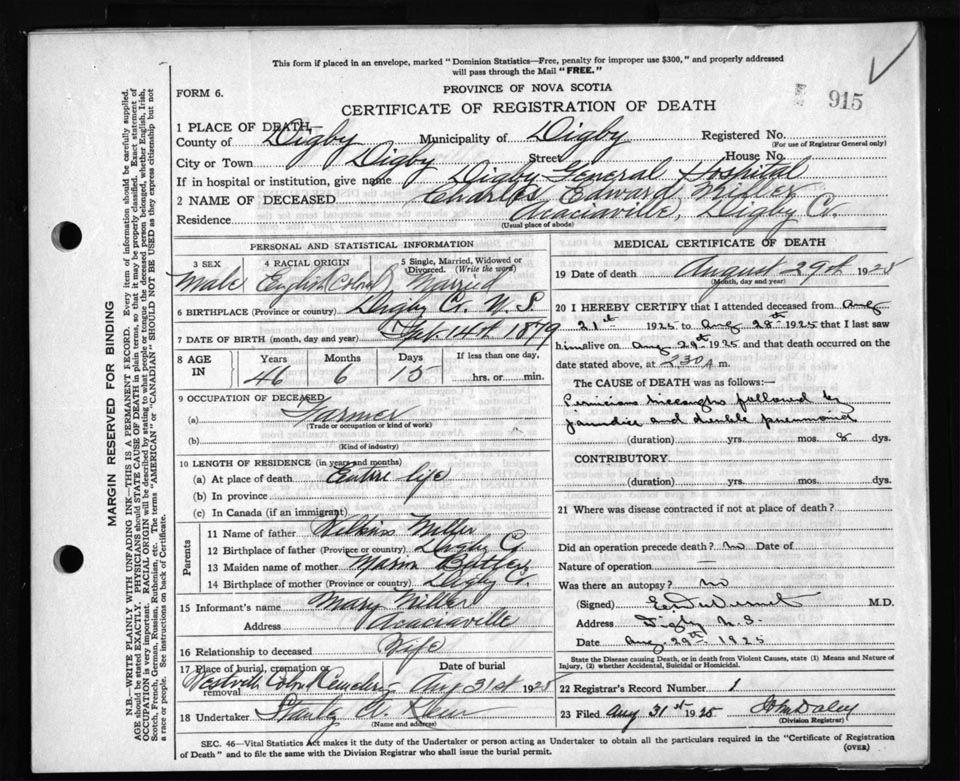 This form if placed in an envelope, marked "Dominion Statistics—Free, penalty for improper use $300," and properly addressed
will pass through the Mail "FREE."
FORM 6.
PROVINCE OF NOVA SCOTIA
CERTIFICATE OF REGISTRATION OF DEATH
915
1 PLACE OF DEATH—
County of Digby Municipality of Digby Registered No.
(For use of Registrar General only)
City or Town Digby Street House No.
If in hospital or institution, give name Digby General Hospital
2 NAME OF DECEASED Charles Edward Miller
Residence Acaciaville, Digby Co.
(Usual place of abode)
PERSONAL AND STATISTICAL INFORMATION
3 SEX 4 RACIAL ORIGIN 5 Single, Married, Widowed or Divorced. (Write the word)
Male English Colored Married
6 BIRTHPLACE (Province or country) Digby Co. N. S.
7 DATE OF BIRTH (month, day and year) Feb. 14th 1879
8 AGE IN Years Months Days If less than one day,
46 6 15 hrs. or min.
9 OCCUPATION OF DECEASED
(a) Farmer
(Trade or occupation or kind of work)
(b)
(Kind of industry)
10 LENGTH OF RESIDENCE (in years and months)
(a) At place of death Entire life
(b) In province
(c) In Canada (if an immigrant)
Parents
11 Name of father Miller
12 Birthplace of father (Province or country) Digby Co.
13 Maiden name of mother Butler
14 Birthplace of mother (Province or country) Digby Co.
15 Informant's name Mary Miller
Address Acaciaville
16 Relationship to deceased Wife
17 Place of burial, cremation or removal Date of burial
Westville Colored Cemetery Aug 31st 1925
18 Undertaker
(Name and address)
MEDICAL CERTIFICATE OF DEATH
19 Date of death August 29th 1925
(Month, day and year)
20 I HEREBY CERTIFY that I attended deceased from Aug
21st 1925 to Aug 28th 1925 that I last saw
him alive on Aug 28th 1925 and that death occurred on the
date stated above, at 2.30 A m.
The CAUSE of DEATH was as follows:—
Pernicious hiccoughs followed by
jaundice and double pneumonia
(duration) yrs. mos. 8 dys.
CONTRIBUTORY.
(duration) yrs. mos. dys.
21 Where was disease contracted if not at place of death?
Did an operation precede death? no Date of
Nature of operation —
Was there an autopsy? no
(Signed) M.D.
Address Digby N.S.
Date Aug 29th 1925
State the Disease causing Death, or in death from Violent Causes, state (1) Means and Nature of
Injury, (2) whether Accidental, Suicidal or Homicidal.
22 Registrar's Record Number 1
23 Filed Aug 31st 1925 Daley
(Division Registrar)
SEC. 46—Vital Statistics Act makes it the duty of the Undertaker or person acting as Undertaker to obtain all the particulars required in the "Certificate of Registration
of Death" and to file the same with the Division Registrar who shall issue the burial permit.
(OVER)
MARGIN RESERVED FOR BINDING
N.B.—WRITE PLAINLY WITH UNFADING INK—THIS IS A PERMANENT RECORD. Every item of information should be carefully supplied.
AGE should be stated EXACTLY. PHYSICIANS should STATE CAUSE OF DEATH in plain terms, so that it may be properly classified. Exact statement of
OCCUPATION is very important. RACIAL ORIGIN will be described by stating to what people or tongue the deceased person belonged, whether English, Irish,
Scotch, French, German, Russian, Ruthenian, etc. The terms "AMERICAN" or "CANADIAN" SHOULD NOT BE USED as they express citizenship but not
a race or people. See instructions on back of Certificate.